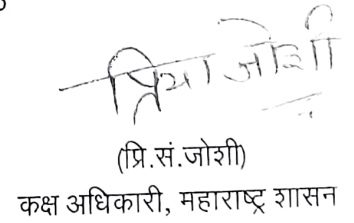 प्रिया जोशी
(प्रि.सं.जोशी)
कक्ष अधिकारी, महाराष्ट्र शासन